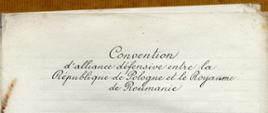 Convention
d'alliance défensive entre la
République de Pologne et le Royaume
de Roumanie